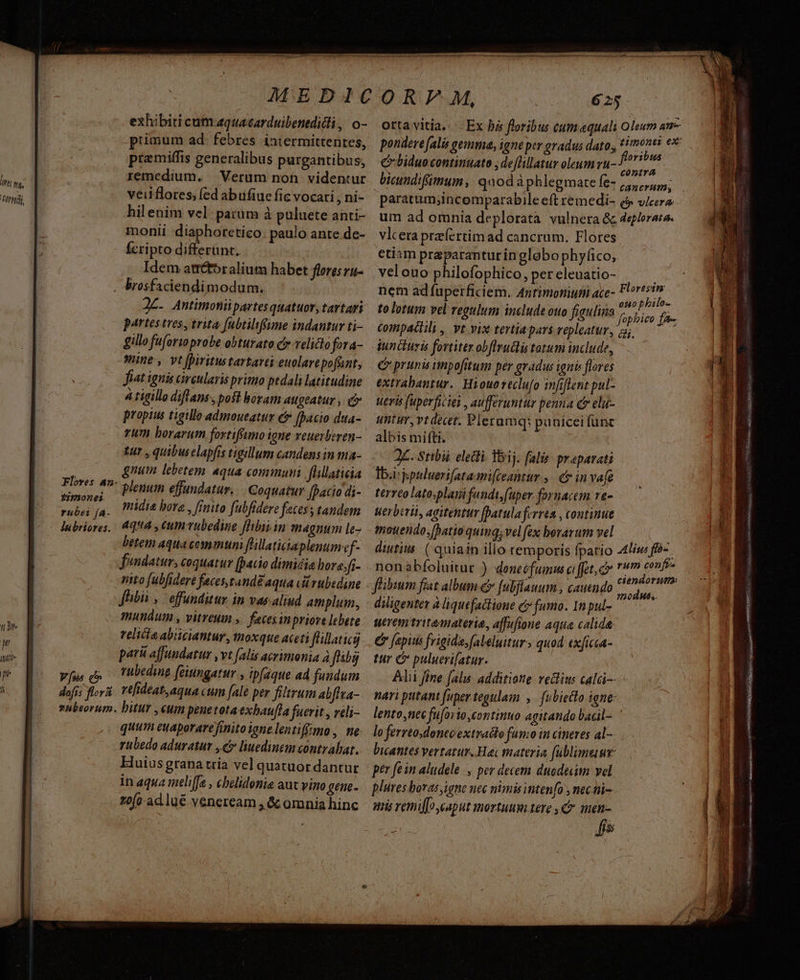 MEDICORVM, 625
exhibiti cum aqua cardui benedicti, o-
ptimum ad febres intermittentes,
præmissis generalibus purgantibus,
remedium. Verum non videntur
veri flores, sed abusiue sic vocari, ni-
hil enim vel parum à puluere anti-
monii diaphoretico paulo ante de-
scripto differunt.
Idem auctor alium habet flores ru-
bros faciendi modum.
♃. Antimonii partes quatuor, tartari
partes tres, trita subtilissime indantur ti-
gillo fusorio probe obturato & relicto fora-
mine, vt spiritus tartarei euolare possint,
fiat ignis circularis primo pedali latitudine
à tigillo distans, post horam augeatur, &
propius tigillo admoueatur & spacio dua-
rum horarum fortissimo igne reuerberen-
tur, quibus elapsis tigillum candens in ma-
gnum lebetem aqua communi stillaticia
plenum effundatur. Coquatur spacio di-
midiæ horæ, sinito subsidere feces, tandem
aqua, cum rubedine stibii in magnum le-
betem aqua communi stillaticia plenum ef-
fundatur, coquatur spacio dimidiæ horæ, si-
nito subsidere faeces, tandē aqua cū rubedine
stibii, effunditur in vas aliud amplum,
mundum, vitreum, faeces in priore lebete
relictæ abiiciantur, moxque aceti stillaticij
parū affundatur, vt salis acrimonia à stibij
rubedine seiungatur, ipsaque ad fundum
resideat, aqua cum sale per filtrum abstra-
hitur, cum pene tota exhausta fuerit, reli-
quum euaporare sinito igne lentissimo, ne
rubedo aduratur, & liuedinem contrahat.
Huius grana tria vel quatuor dantur
in aqua melissæ, chelidoniæ aut vino gene-
roso ad luē veneream, & omnia hinc
Flores an-
timonei
rubei sa-
lubriores.
Vsus &
dosis florū
rubeorum.
orta vitia. Ex his floribus cum æquali
pondere salis gemmæ, igne per gradus dato,
& biduo continuato, destillatur oleum ru-
bicundissimum, quod à phlegmate se-
paratum, incomparabile est remedi-
um ad omnia deplorata vulnera &
vlcera præsertim ad cancrum. Flores
etiam præparantur in globo physico,
vel ouo philosophico, per eleuatio-
nem ad superficiem. Antimonium ace-
to lotum vel regulum include ouo figulina
compactili, vt vix tertia pars repleatur,
iuncturis fortiter obstructis totum include,
& prunis impositum per gradus ignis flores
extrahantur. Hi ouo recluso insistent pul-
ueris superficiei, aufferuntur penna & elu-
untur, vt decet. Plerumq; punicei sunt
albis misti.
♃. Stibii electi ℔ij. salis præparati
℔. puluerisata misceantur, & in vase
terreo lato, plani fundi, super fornacem re-
uerberii, agitentur spatula ferrea, continue
mouendo, spatio quinq; vel sex horarum vel
diutius (quia in illo temporis spatio
non absoluitur) donec fumus cesset, &
stibium fiat album & subflauum, cauendo
diligenter à liquefactione & fumo. In pul-
uerem trita materia, affusione aquæ calidæ
& sæpius frigidæ, saleluitur, quod exsicca-
tur & puluerisatur.
Alii sine salis additione rectius calci-
nari putant super tegulam, subiecto igne
lento, nec fusorio, continuo agitando bacil-
lo ferreo, donec extracto fumo in cineres al-
bicantes vertatur. Hæc materia sublimetur
per se in aludele, per decem duodecim vel
plures horas, igne nec nimis intenso, nec ni-
mis remisso, caput mortuum tere, & men-
sis
Oleum an-
timonii ex
floribus
contra
cancrum,
& vlcera
deplorata.
Flores in
ouo philo-
sophico fa-
cti.
Alius flo-
rum confi-
ciendorum
modus.